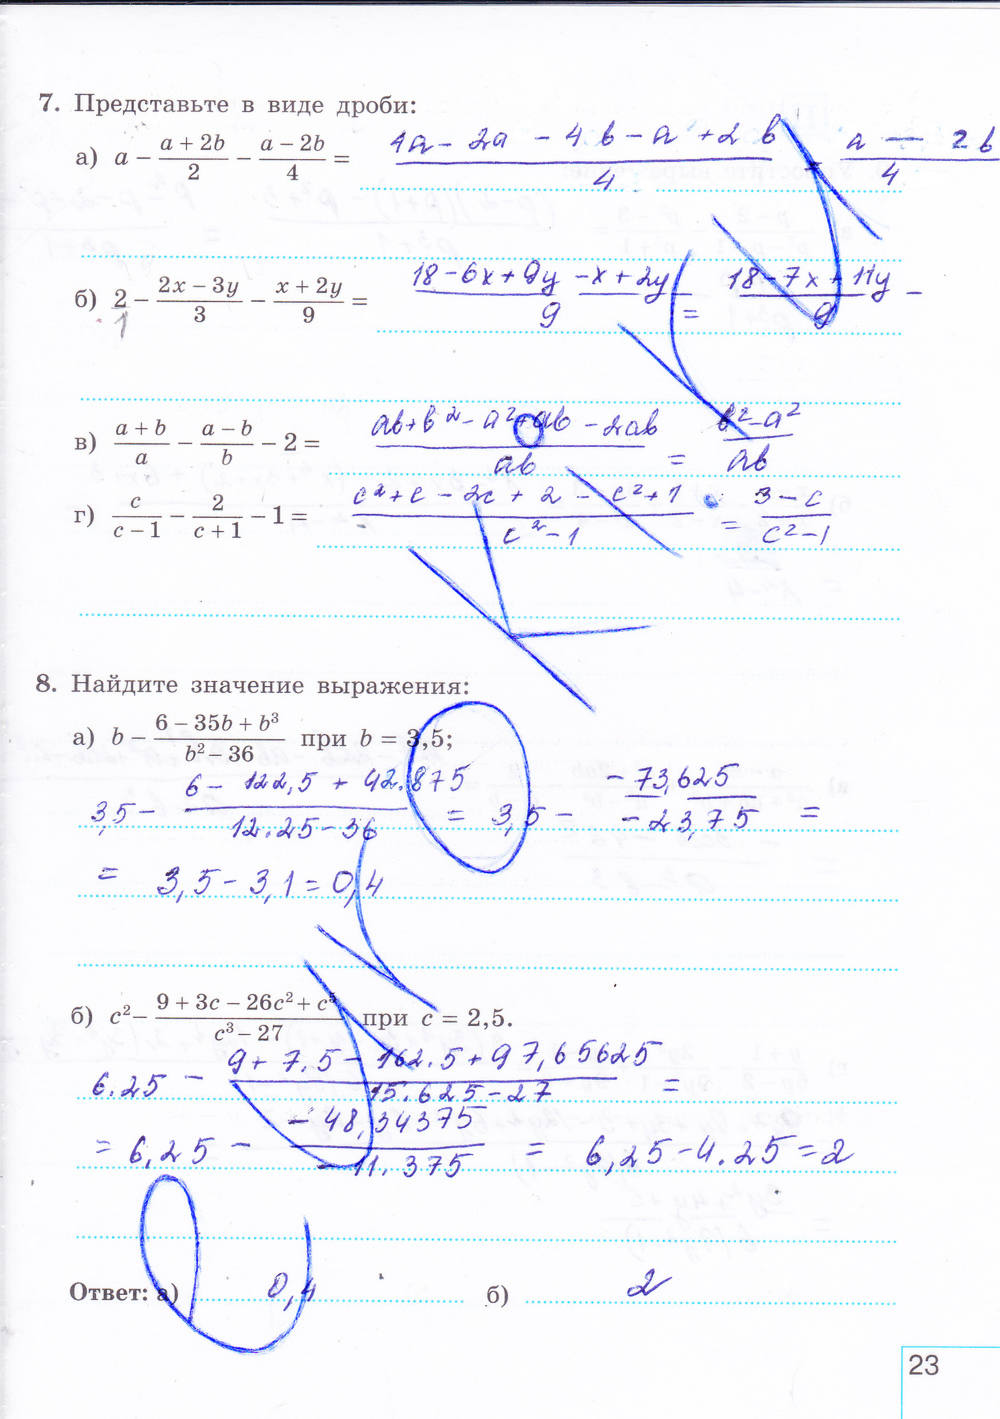 7. Представьте в виде дроби:
а) a − (a + 2b)/2 − (a − 2b)/4 = (4a − 2a − 4b − a + 2b)/4 = (a − 2b)/4
б) 2/1 − (2x − 3y)/3 − (x + 2y)/9 = (18 − 6x + 9y − x + 2y)/9 = (18 − 7x + 11y)/9 −
в) (a + b)/a − (a − b)/b − 2 = (ab + b² − a² + ab − 2ab)/ab = (b² − a²)/ab
г) c/(c − 1) − 2/(c + 1) − 1 = (c² + c − 2c + 2 − c² + 1)/(c² − 1) = (3 − c)/(c² − 1)
8. Найдите значение выражения:
а) b − (6 − 35b + b³)/(b² − 36) при b = 3,5;
3,5 − (6 − 122,5 + 42.875)/(12.25 − 36) = 3,5 − (−73,625)/(−23,75) =
= 3,5 − 3,1 = 0,4
б) c² − (9 + 3c − 26c² + c⁵)/(c³ − 27) при c = 2,5.
6.25 − (9 + 7.5 − 162.5 + 97,65625)/(15.625 − 27) =
= 6,25 − (−48,34375)/(−11.375) = 6,25 − 4.25 = 2
Ответ: а) 0,4 б) 2
23